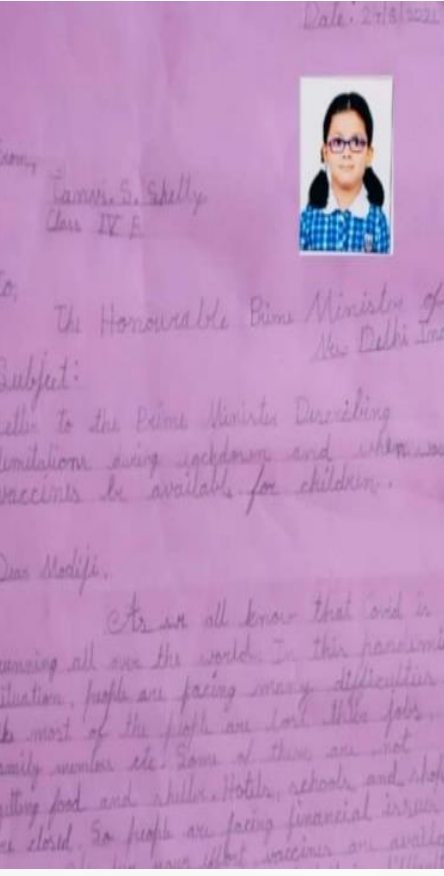 Date: 27/8/2021
From,
Tanvi. S. Shelly
Class IV E
To,
The Honourable Prime Minister of
New Delhi Ind
Subject:
Letter To the Prime Minister Describing
limitations during lockdown and when wou
vaccines be available for children.
Dear Modiji,
As we all know that Covid is
running all over the world. In this pandemi
situation, people are facing many difficulties
most of the people are lost their jobs,
family etc. Some of them are not
getting food and shelter. Hotels, schools and shop
are closed. So people are facing financial issues
your effort, vaccines are availa